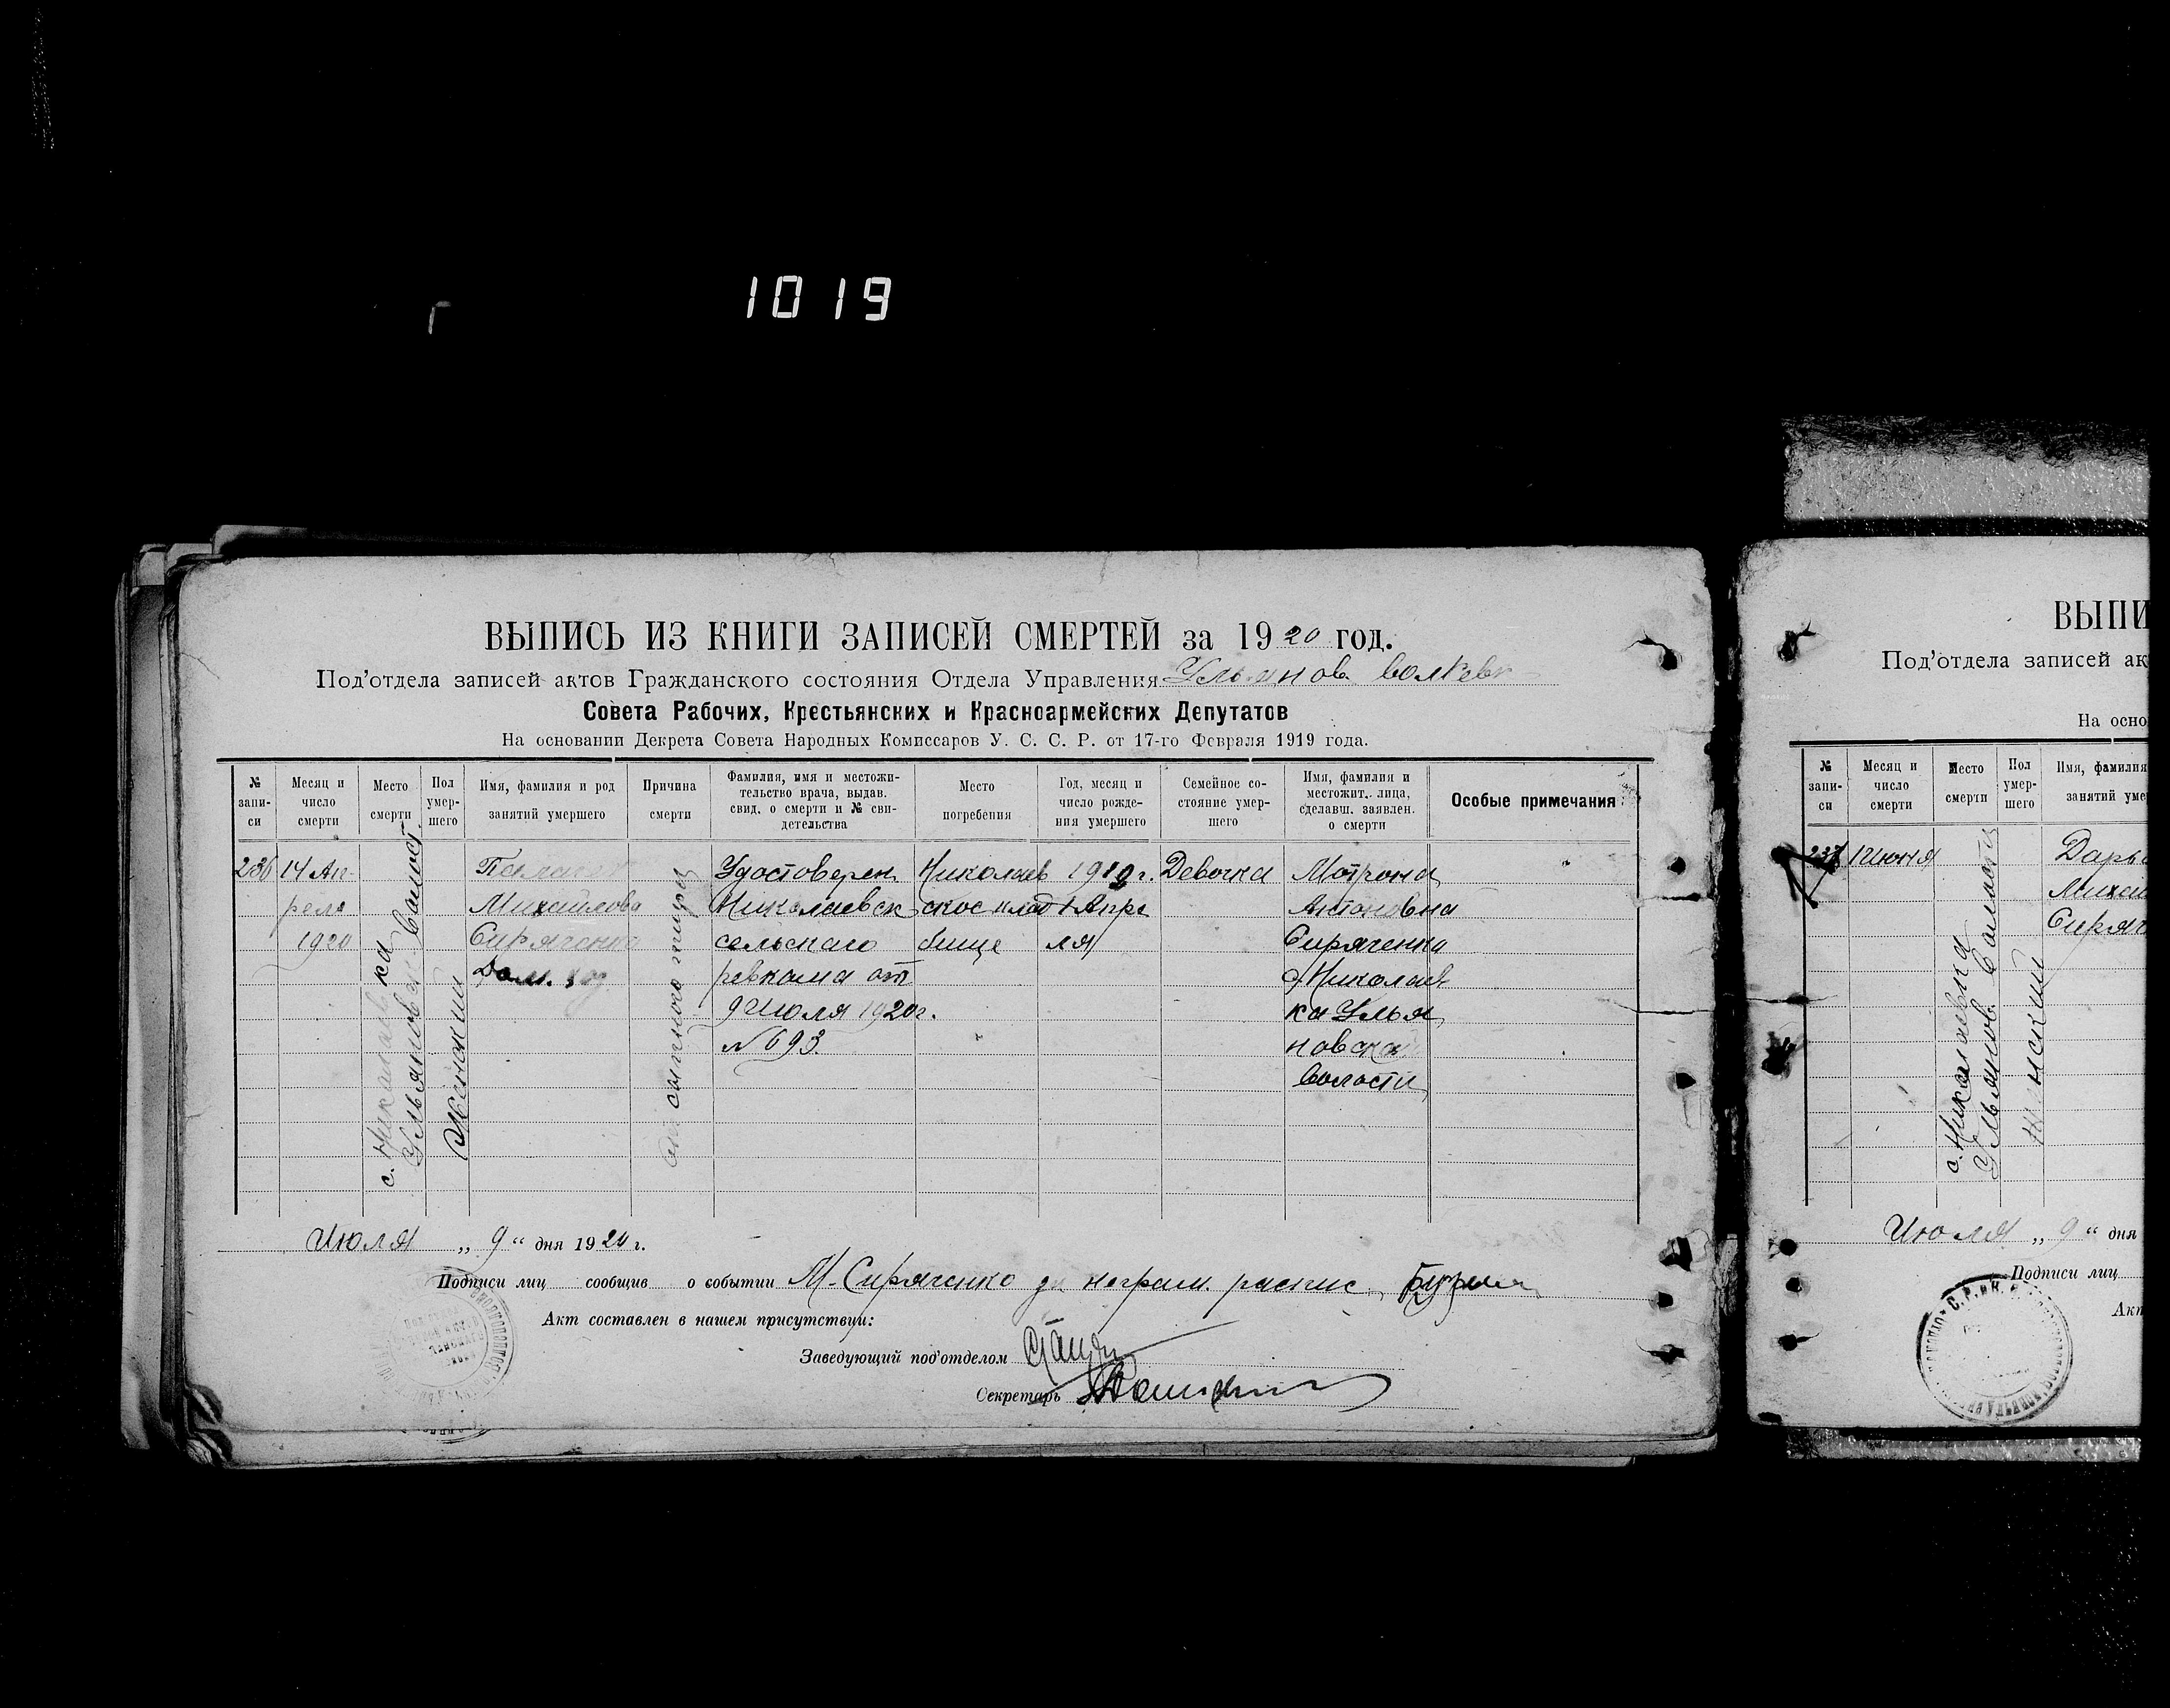 1019
ВЫПИСЬ ИЗ КНИГИ ЗАПИСЕЙ СМЕРТЕЙ за 1920 год.
Под'отдела записей актов Гражданского состояния Отдела Управления Ульянов.
Совета Рабочих, Крестьянских и Красноармейских Депутатов
На основании Декрета Совета Народных Комиссаров У. С. С. Р. от 17-го Февраля 1919 года.
№ запи-
си
Месяц и
число
смерти
Место
смерти
Пол
умер-
шего
Имя, фамилия и род
занятий умершего
Причина
смерти
Фамилия, имя и местожи-
тельство врача, выдав.
свид. о смерти и № сви-
детельства
Место
погребения
Год, месяц и
число рожде-
ния умершего
Семейное со-
стояние умер-
шего
Имя, фамилия и
местожит. лица,
сделавш. заявлен.
о смерти
Особые примечания
236
14 Ап-
реля
1920
с. Николаевка
Ульяновск. Волост.
Женский
Михайлова
Сиряченко
сыпного тифа
Удостоверен
Николаевск
сельскаго
ревкома от
9 Июля 1920 г.
№ 693.
Николаев
ское клад
бище
1919 г.
1 Апре
ля
Девочка
Мотрона
Антоновна
Сиряченко
Николаев
ка Улья
новска
Волости
Июля „ 9 “ дня 1920 г.
Подписи лиц сообщив о событии М. Сиряченко неграм. распис.
Акт составлен в нашем присутствии:
Заведующий под'отделом
Секретарь
ВЫПИ
Под'отдела записей ак
На осно
№
запи-
си
Месяц и
число
смерти
Место
смерти
Пол
умер-
шего
Имя, фамилия
занятий уме
237
1 Июня
с. Николаевка
Ульянов. Волости
Женский
Дарь
Михай
Сиряч
Июля „ 9 “ дня
Подписи лиц
Акт